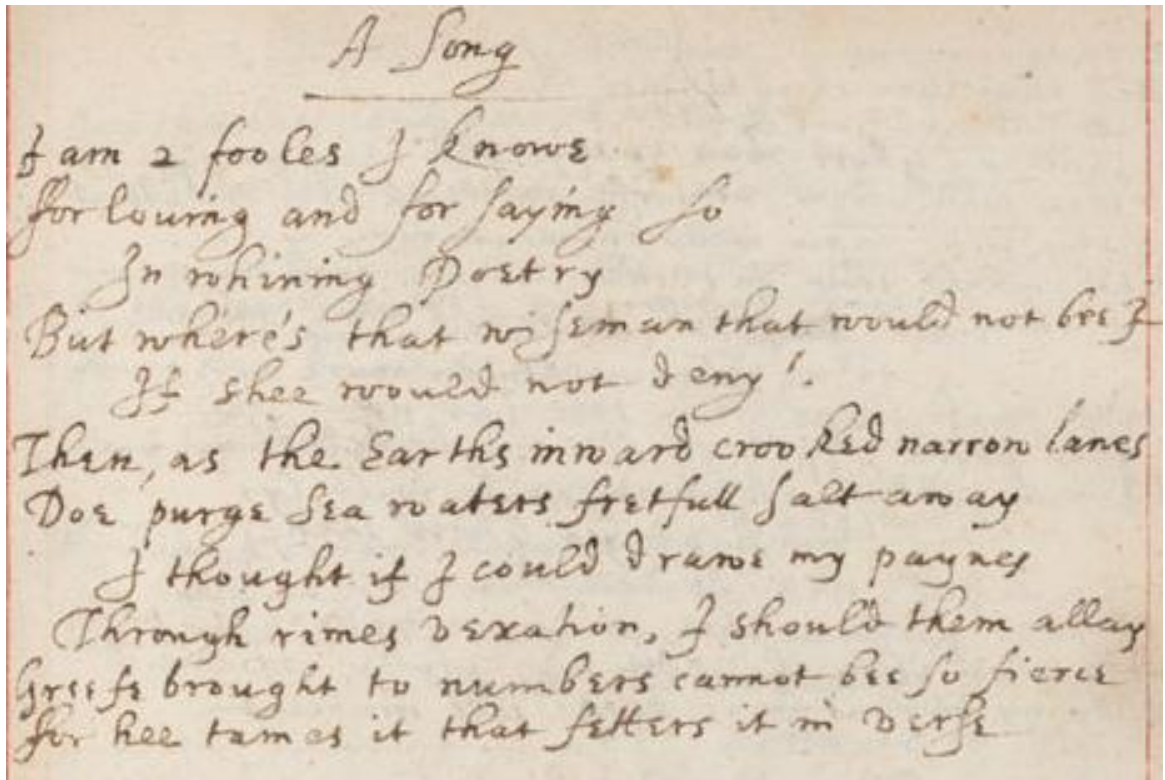 A Song
I am 2 fooles I knowe
for louing and for saying so
In whining Poetry
But where's that wiseman that would not bee I
If shee would not deny!.
Then, as the Earths inward crooked narrow lanes
Doe purge Sea waters fretfull salt away
I thought if I could drawe my paynes
Through rimes vexation, I should them allay
Greefe brought to numbers cannot bee so fierce
for hee tames it that fetters it in verse